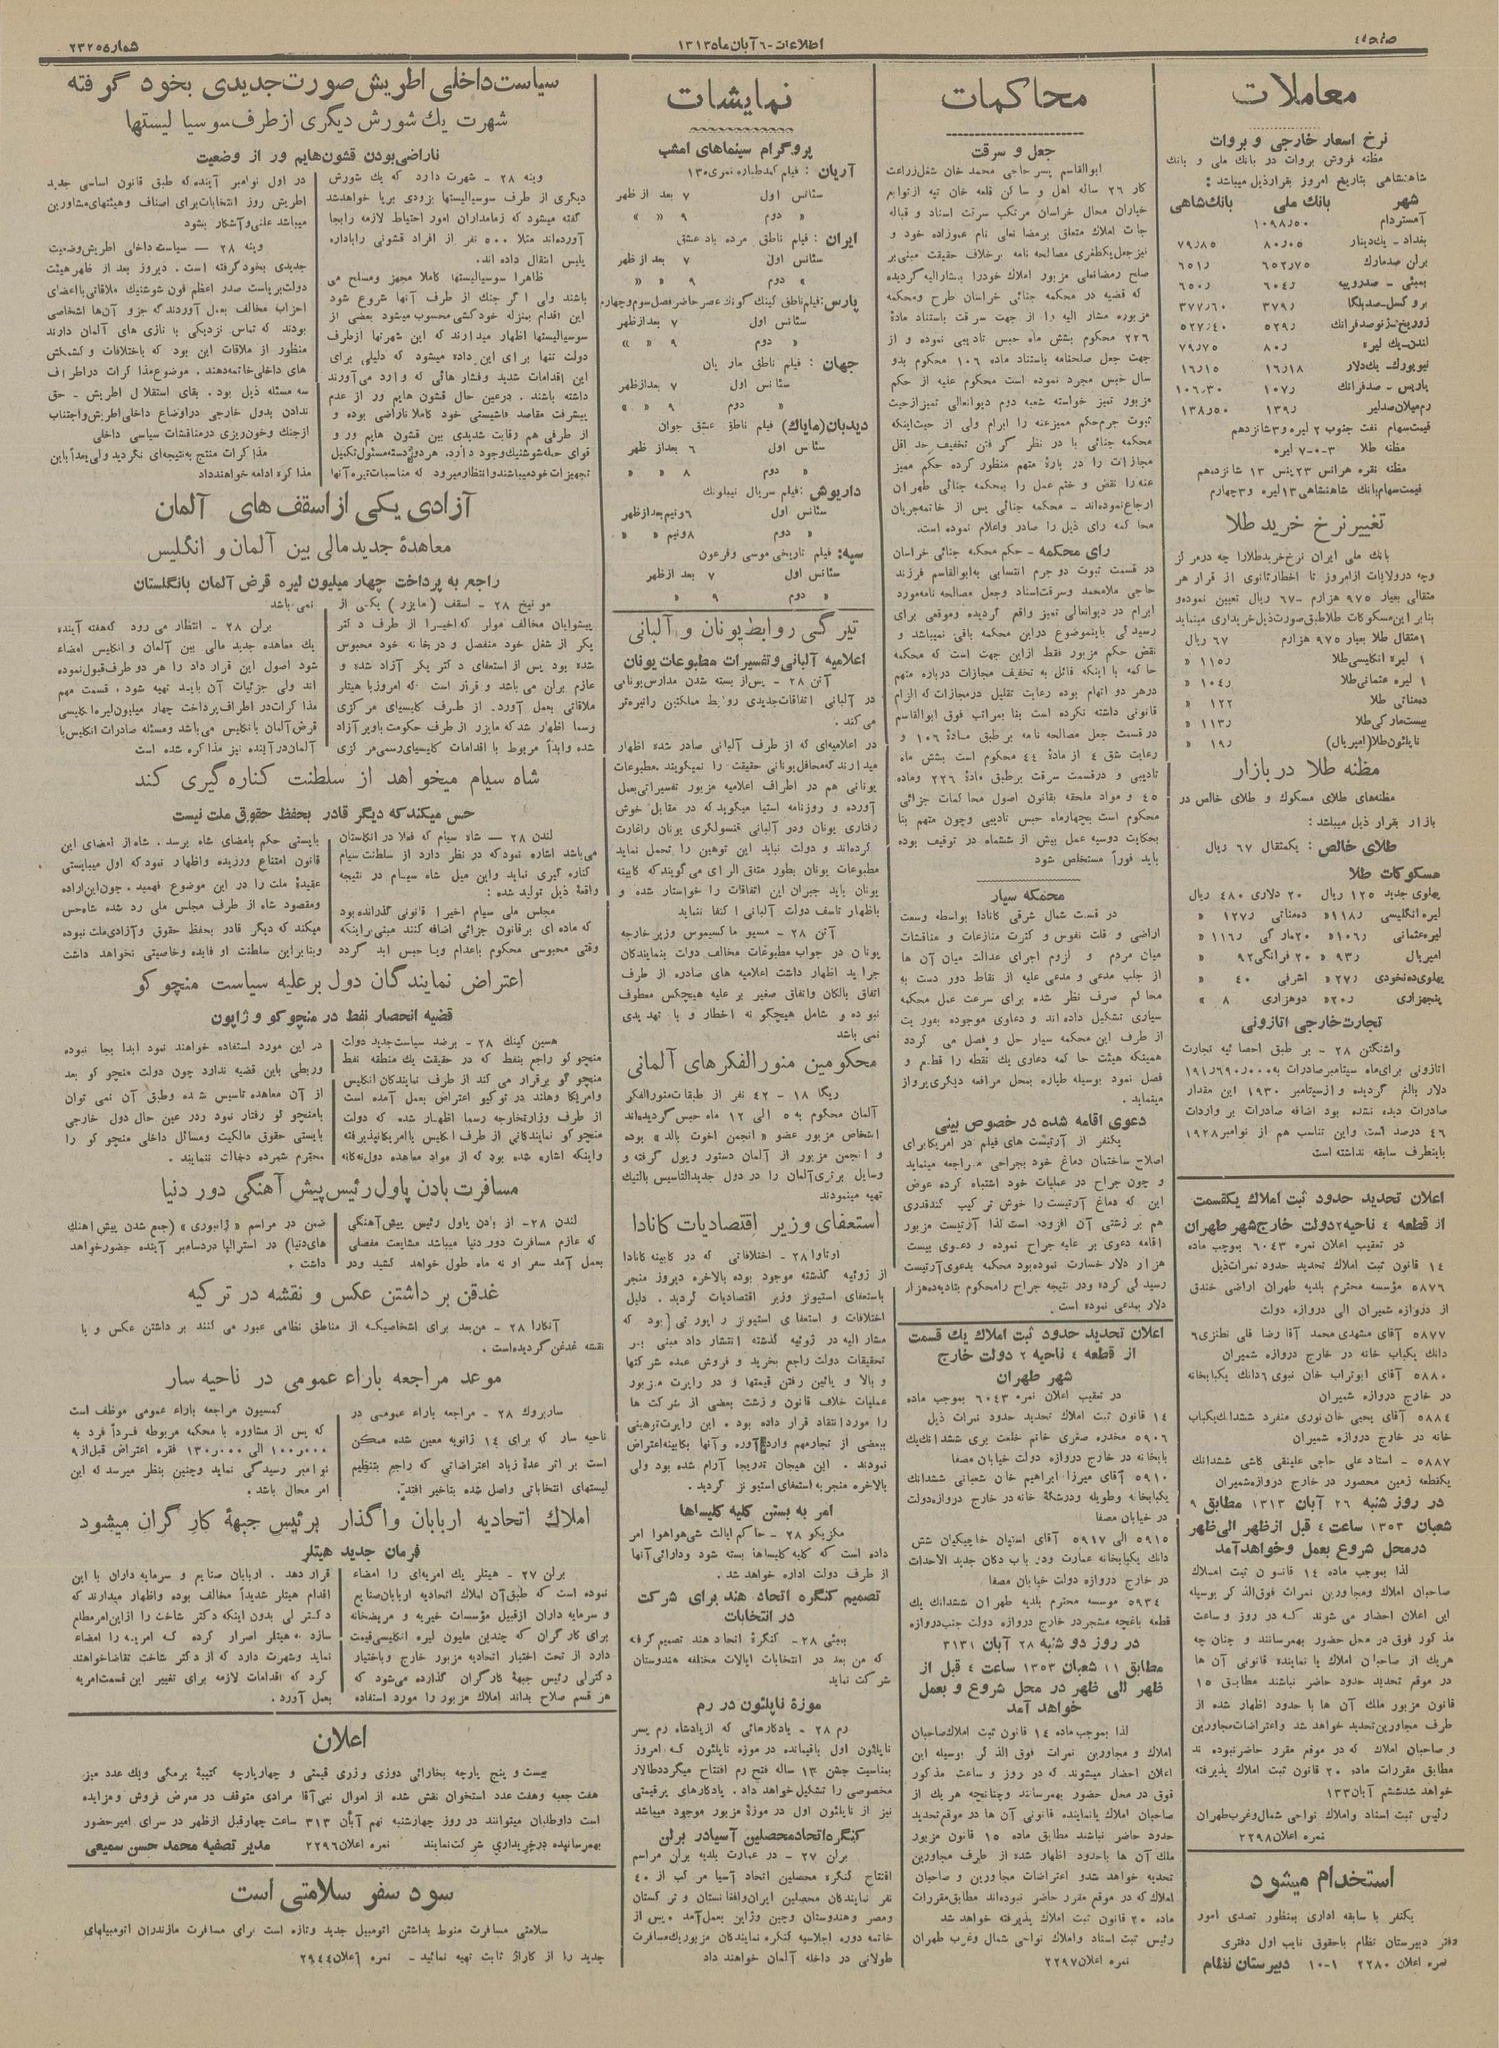 صفحه ٤
اطلاعات - ٦ آبان ماه ١٣١٣
شماره ٢٣٢٥
معاملات
نرخ اسعار خارجی و بروات
مظنه فروش بروات در بانك ملی و بانك
شاهنشاهی بتاریخ امروز بقرار ذیل میباشد :
شهر بانك ملی بانك شاهی
آمستردام ١٠٩٨٫٥٠
بغداد - یك دینار ٨٠٫٠٥ ٧٩٫٨٥
برلن صد مارك ٦٥٢٫٧٥ ٦٥١٫
بمبئی - صد روپیه ٦٠٤٫ ٦٥٠٫
بروکسل - صد بلگا ٣٧٩٫ ٣٧٧٫٦٠
زوریخ - ژنو صد فرانك ٥٢٩٫ ٥٢٧٫٤٠
لندن - یك لیره ٨٠٫ ٧٩٫٧٥
نیویورك - یك دلار ١٦٫١٨ ١٦٫١٥
پاریس - صد فرانك ١٠٧٫ ١٠٦٫٣٠
رم میلان صد لیر ١٣٩٫ ١٣٨٫٥٠
قیمت سهام نفت جنوب ٢ لیره و ٣ شانزدهم
مظنه طلا ٣-٠-٧ لیره
مظنه نقره هر انس ٢٣ پنس ١٣ شانزدهم
قیمت سهام بانك شاهنشاهی ١٣ لیره و ٣ چهارم
تغییر نرخ خرید طلا
بانك ملی ایران نرخ خرید طلا را چه در مرکز
وچه در ولایات از امروز تا اخطار ثانوی از قرار هر
مثقالی بعیار ٩٧٥ هزارم -٦٧ ریال تعیین نموده و
بنابر این مسکوکات طلا طبق صورت ذیل خریداری مینماید
١ مثقال طلا بعیار ٩٧٥ هزارم ٦٧ ریال
١ لیره انگلیسی طلا ١١٥٫ «
١ لیره عثمانی طلا ١٠٤٫ «
ده مناتی طلا ١٢٢ «
بیست مارکی طلا ١١٣٫ «
ناپلئون طلا (امپریال) ١٩٫ «
مظنه طلا در بازار
مظنه های طلای مسکوك و طلای خالص در
بازار بقرار ذیل میباشد :
طلای خالص : یکمثقال ٦٧ ریال
مسکوکات طلا
پهلوی جدید ١٢٥ ریال ٢٠ دلاری ٤٨٠ ریال
لیره انگلیسی ١١٨٫ « ده مناتی ١٢٧٫ «
لیره عثمانی ١٠٦٫ « ٢٠ مارکی ١١٦٫ «
امپریال ٩٣٫ « ٢٠ فرانکی ٩٢ «
پهلوی ده نخودی ٢٧٫ « اشرفی ٤٠ «
پنجهزاری ٢٠٫ « دوهزاری ٨ «
تجارت خارجی اتازونی
واشنگتن ٢٨ - بر طبق احصائیه تجارت
اتازونی برای ماه سپتامبر صادرات به ١٩١٫٦٩٠٫٠٠٠
دلار بالغ گردیده و از سپتامبر ١٩٣٠ این مقدار
صادرات دیده نشده بود اضافه صادرات بر واردات
٤٦ درصد است و این تناسب هم از نوامبر ١٩٢٨
باینطرف سابقه نداشته است
اعلان تحدید حدود ثبت املاك یکقسمت
از قطعه ٤ ناحیه ٢ دولت خارج شهر طهران
در تعقیب اعلان نمره ٦٠٤٣ بموجب ماده
١٤ قانون ثبت املاك تحدید حدود نمرات ذیل
٥٨٧٦ مؤسسه محترم بلدیه طهران اراضی خندق
از دروازه شمیران الی دروازه دولت
٥٨٧٧ آقای مشهدی محمد آقا رضا قلی نطنزی ٦
دانك یکباب خانه در خارج دروازه شمیران
٥٨٨٠ آقای ابوتراب خان نبوی ٦ دانك یکبابخانه
در خارج دروازه شمیران
٥٨٨٤ آقای یحیی خان نوری منفرد ششدانك یکباب
خانه در خارج دروازه شمیران
٥٨٨٧ - استاد علی حاجی علینقی کاشی ششدانك
یکقطعه زمین محصور در خارج دروازه شمیران
در روز شنبه ٢٦ آبان ١٣١٣ مطابق ٩
شعبان ١٣٥٣ ساعت ٤ قبل از ظهر الی ظهر
در محل شروع بعمل و خواهد آمد
لذا بموجب ماده ١٤ قانون ثبت املاك
صاحبان املاك و مجاورین نمرات فوق الذکر بوسیله
این اعلان احضار می شوند که در روز و ساعت
مذکور فوق در محل حضور بهمرسانند و چنان چه
هر یك از صاحبان املاك یا نماینده قانونی آن ها
در موقع تحدید حدود حاضر نباشند مطابق ١٥
قانون مزبور ملك آن ها با حدود اظهار شده از
طرف مجاورین تحدید خواهد شد و اعتراضات مجاورین
و صاحبان املاك که در موقع مقرر حاضر نبوده اند
مطابق مقررات ماده ٢٠ قانون ثبت املاك پذیرفته
خواهد شد ششم آبان ١٣٣
رئیس ثبت اسناد و املاك نواحی شمال و غرب طهران
نمره اعلان ٢٢٩٨
استخدام میشود
یکنفر با سابقه اداری بمنظور تصدی امور
دفتر دبیرستان نظام با حقوق نایب اول دفتری
نمره اعلان ٢٢٨٠ ١-١٠ دبیرستان نظام
محاکمات
جعل و سرقت
ابوالقاسم پسر حاجی محمد خان شغل زراعت
کار ٢٦ ساله اهل و ساکن قلعه خان تپه از توابع
خیاران محال خراسان مرتکب سرقت اسناد و قباله
جات املاك متعلق برمضانعلی نام عموزاده خود و
نیز جعل یکطغری مصالحه نامه بر خلاف حقیقت مبنی بر
صلح رمضانعلی مزبور املاك خود را بمشارالیه گردیده
که قضیه در محکمه جنائی خراسان طرح و محکمه
مزبوره مشار الیه را از جهت سرقت باستناد مادۀ
٢٢٦ محکوم بشش ماه حبس تادیبی نموده و از
جهت جعل صلحنامه باستناد ماده ١٠٦ محکوم بدو
سال حبس مجرد نموده است محکوم علیه از حکم
مزبور تمیز خواسته شعبه دوم دیوانعالی تمیز از حیث
ثبوت جرم حکم ممیزعنه را ابرام ولی از حیث اینکه
محکمه جنائی با در نظر گرفتن تخفیف حد اقل
مجازات را در بارۀ متهم منظور کرده حکم ممیز
عنه را نقض و ختم عمل را بمحکمه جنائی طهران
ارجاع نموده اند - محکمه جنائی پس از خاتمه جریان
محاکمه رای ذیل را صادر و اعلام نموده است.
رای محکمه - حکم محکمه جنائی خراسان
در قسمت ثبوت دو جرم انتسابی به ابوالقاسم فرزند
حاجی ملا محمد و سرقت اسناد و جعل مصالحه نامه مورد
ابرام در دیوانعالی تمیز واقع گردیده و موقعی برای
رسیدگی باینموضوع در این محکمه باقی نمیباشد و
نقض حکم مزبور فقط از این جهت است که محکمه
حاکمه با اینکه قائل به تخفیف مجازات درباره متهم
در هر دو اتهام بوده رعایت تقلیل در مجازات که الزام
قانونی داشته نکرده است بنا بمراتب فوق ابوالقاسم
در قسمت جعل مصالحه نامه بر طبق مادۀ ١٠٦ و
رعایت شق ٤ از مادۀ ٤٤ محکوم است بشش ماه
تادیبی و در قسمت سرقت بر طبق مادۀ ٢٢٦ و ماده
٤٥ و مواد ملحقه بقانون اصول محاکمات جزائی
محکوم است بچهار ماه حبس تادیبی و چون متهم بنا
بحکایت دوسیه عمل بیش از ششماه در توقیف بوده
باید فوراً مستخلص شود
محکمه سیار
در قسمت شمال شرقی کانادا بواسطه وسعت
اراضی و قلت نفوس و کثرت منازعات و مناقشات
میان مردم و لزوم اجرای عدالت میان آن ها
از جلب مدعی و مدعی علیه از نقاط دور دست به
محاکم صرف نظر شده برای سرعت عمل محکمه
سیاری تشکیل داده اند و دعاوی موجوده بفوریت
از طرف این محکمه سیار حل و فصل می گردد
همینکه هیئت حاکمه دعاوی یك نقطه را قطع و
فصل نمود بوسیله طیاره بمحل مرافعه دیگری پرواز
مینماید.
دعوی اقامه شده در خصوص بینی
یکنفر از آرتیست های فیلم در امریکا برای
اصلاح ساختمان دماغ خود بجراحی مراجعه مینماید
و چون جراح در عملیات خود اشتباه کرده عوض
این که دماغ آرتیست را خوش ترکیب کند قدری
هم بر زشتی آن افزوده است لذا آرتیست مزبور
اقامه دعوی بر علیه جراح نموده و دعوی بیست
هزار دلار خسارت نموده بود محکمه بدعوی آرتیست
رسیدگی کرده و در نتیجه جراح را محکوم بتادیه ده هزار
دلار بمدعی نموده است .
اعلان تحدید حدود ثبت املاك یك قسمت
از قطعه ٤ ناحیه ٢ دولت خارج
شهر طهران
در تعقیب اعلان نمره ٦٠٤٣ بموجب ماده
١٤ قانون ثبت املاك تحدید حدود نمرات ذیل
٥٩٠٦ مخدره صغری خانم خلعت بری ششدانك یك
بابخانه در خارج دروازه دولت خیابان مصفا
٥٩١٠ آقای میرزا ابراهیم خان شعبانی ششدانك
یکبابخانه و طویله و درشکه خانه در خارج دروازه دولت
در خیابان مصفا
٥٩١٥ الی ٥٩١٧ آقای استپان خاچیکیان شش
دانك یکبابخانه عمارت ودو باب دکان جدید الاحداث
در خارج دروازه دولت خیابان مصفا
٥٩٣٤ موسسه محترم بلدیه طهران ششدانك یك
قطعه باغچه مشجر در خارج دروازه دولت جنب دروازه
در روز دو شنبه ٢٨ آبان ٣١٣١
مطابق ١١ شعبان ١٣٥٣ ساعت ٤ قبل از
ظهر الی ظهر در محل شروع و بعمل
خواهد آمد
لذا بموجب ماده ١٤ قانون ثبت املاك صاحبان
املاك و مجاورین نمرات فوق الذکر بوسیله این
اعلان احضار میشوند که در روز و ساعت مذکور
فوق در محل حضور بهمرسانند و چنانچه هر یك از
صاحبان املاك یا نماینده قانونی آن ها در موقع تحدید
حدود حاضر نباشند مطابق ماده ١٥ قانون مزبور
ملك آن ها با حدود اظهار شده از طرف مجاورین
تحدید خواهد شد و اعتراضات مجاورین و صاحبان
املاك که در موقع مقرر حاضر نبوده اند مطابق مقررات
ماده ٢٠ قانون ثبت املاك پذیرفته خواهد شد
رئیس ثبت اسناد و املاك نواحی شمال و غرب طهران
نمره اعلان ٢٢٩٧
نمایشات
پروگرام سینماهای امشب
آریان : فیلم کمد طیاره نمری ١٣٠
سئانس اول ٧ بعد از ظهر
« دوم ٩ « »
ایران : فیلم ناطق مرده باد عشق
سئانس اول ٧ بعد از ظهر
» دوم ٩ « »
پارس : فیلم ناطق کینك کونك عصر حاضر فصل سوم و چهارم
سئانس اول ٧ بعد از ظهر
« دوم ٩ « »
جهان : فیلم ناطق ماریان
سئانس اول ٧ بعد از ظهر
« دوم ٩ « »
دیدبان (مایاك) فیلم ناطق عشق جوان
سئانس اول ٦ بعد از ظهر
« دوم ٨ « »
داریوش : فیلم سریال نیبلونك
سئانس اول ٦ ونیم بعد از ظهر
« دوم ٨ ونیم « »
سپه : فیلم تاریخی موسی و فرعون
سئانس اول ٧ بعد از ظهر
« دوم ٩ «
تیرگی روابط یونان و آلبانی
اعلامیه آلبانی و تفسیرات مطبوعات یونان
آتن ٢٨ - پس از بسته شدن مدارس یونانی
در آلبانی اتفاقات جدیدی روابط مملکتین را تیره تر
می کند .
در اعلامیه ای که از طرف آلبانی صادر شده اظهار
میدارند که محافل یونانی حقیقت را نمیگویند . مطبوعات
یونانی هم در اطراف اعلامیه مزبور تفسیراتی بعمل
آورده و روزنامه استیا میگوید که در مقابل خوش
رفتاری یونان ودر آلبانی قنسولگری یونان راغارت
کرده اند و دولت نباید این توهین را تحمل نماید
مطبوعات یونان بطور متفق الرای می گویند که کابینه
یونان باید جبران این اتفاقات را خواستار شده و
باظهار تاسف دولت آلبانی اکتفا ننماید
آتن ٢٨ - مسیو ماکسیموس وزیر خارجه
یونان در جواب مطبوعات مخالف دولت بنمایندگان
جراید اظهار داشت اعلامیه های صادره از طرف
اتفاق بالکان و اتفاق صغیر بر علیه هیچکس معطوف
نبوده و شامل هیچگونه اخطار و یا تهدیدی
نمی باشد
محکومین منورالفکرهای آلمانی
ریگا ١٨ - ٤٢ نفر از طبقات منور الفکر
آلمان محکوم به ٥ الی ١٢ ماه حبس گردیده اند
اشخاص مزبور عضو « انجمن اخوت بالد» بوده
و انجمن مزبور از آلمان دستور و پول گرفته و
وسایل برتری آلمان را در دول جدید التاسیس بالتیك
تهیه مینمودند
استعفای وزیر اقتصادیات کانادا
اوتاوا ٢٨ - اختلافاتی که در کابینه کانادا
از ژوئیه گذشته موجود بوده بالاخره دیروز منجر
باستعفای استیونز وزیر اقتصادیات گردید . دلیل
اختلافات و استعفای استیونز راپورتی بود که
مشار الیه در ژوئیه گذشته انتشار داد مبنی بر
تحقیقات دولت راجع بخرید و فروش عمده شرکتها
و بالا و پائین رفتن قیمتها و در راپرت مزبور
عملیات خلاف قانون و زشت بعضی از شرکت ها
را مورد انتقاد قرار داده بود . این راپرت
ببعضی از تجار مهم وارد آورده و آنها بکابینه اعتراض
نمودند . این هیجان تدریجا آرام شده بود ولی
بالاخره منجر به استعفای استیونز گردید .
امر به بستن کلیه کلیساها
مکزیکو ٢٨ - حاکم ایالت شی هواهوا امر
داده است که کلیه کلیساها بسته شود ودارائی آنها
از طرف دولت اداره خواهد شد .
تصمیم کنگره اتحاد هند برای شرکت
در انتخابات
بمبئی ٢٨ - کنگرۀ اتحاد هند تصمیم گرفته
که من بعد در انتخابات ایالات مختلفه هندوستان
شرکت نماید
موزۀ ناپلئون در رم
رم ٢٨ - یادگارهائی که از پادشاه رم پسر
ناپلئون اول باقیمانده در موزه ناپلئون که امروز
بمناسبت جشن ١٣ ساله فتح رم افتتاح میگردد تالار
مخصوصی را تشکیل خواهد داد . یادگارهای پرقیمتی
نیز از ناپلئون اول در موزۀ مزبور موجود میباشد
کنگره اتحاد محصلین آسیا در برلن
برلن ٢٧ - در عمارت بلدیه برلن مراسم
افتتاح کنگره محصلین اتحاد آسیا مرکب از ٤٠
نفر نمایندگان محصلین ایران و افغانستان و ترکستان
ومصر وهندوستان وچین وژاپن بعمل آمد . پس از
خاتمه دوره اجلاسیه کنگره نمایندگان مزبور یك مسافرت
طولانی در داخله آلمان خواهند داد
سیاست داخلی اطریش صورت جدیدی بخود گرفته
شهرت یك شورش دیگری از طرف سوسیالیستها
ناراضی بودن قشون هایم ور از وضعیت
وینه ٢٨ - شهرت دارد که یك شورش
دیگری از طرف سوسیالیستها بزودی برپا خواهد شد
گفته میشود که زمامداران امور احتیاط لازمه را بجا
آورده اند مثلا ٥٠٠ نفر از افراد قشونی را باداره
پلیس انتقال داده اند.
ظاهرا سوسیالیستها کاملا مجهز ومسلح می
باشند ولی اگر جنك از طرف آنها شروع شود
این اقدام بمنزله خودکشی محسوب میشود بعضی از
سوسیالیستها اظهار میدارند که این شهرتها از طرف
دولت تنها برای این داده میشود که دلیلی برای
این اقدامات شدید وفشار هائی که وارد می آورند
داشته باشند . درعین حال قشون هایم ور از عدم
پیشرفت مقاصد فاشیستی خود کاملا ناراضی بوده و
از طرفی هم رقابت شدیدی بین قشون هایم ور و
قوای حمله شوشنیك وجود دارد. هر دو دسته مسئول تکمیل
تجهیزات خود میباشند وانتظار میرود که مناسبات تیره آنها
در اول نوامبر آینده که طبق قانون اساسی جدید
اطریش روز انتخابات برای اصناف وهیئتهای مشاورین
میباشد علنی و آشکار بشود
وینه ٢٨ — سیاست داخلی اطریش وضعیت
جدیدی بخود گرفته است . دیروز بعد از ظهر هیئت
دولت بریاست صدر اعظم فون شوشنیك ملاقاتی با اعضای
احزاب مخالف بعمل آوردند که جزو آن ها اشخاصی
بودند که تماس نزدیکی با نازی های آلمان دارند
منظور از ملاقات این بود که باختلافات و کشمکش
های داخلی خاتمه دهند . موضوع مذاکرات در اطراف
سه مسئله ذیل بود . بقای استقلال اطریش - حق
ندادن بدول خارجی در اوضاع داخلی اطریش واجتناب
از جنك وخون ریزی در مناقشات سیاسی داخلی
مذاکرات منتج به نتیجه ای نگردید ولی بعداً باین
مذاکره ادامه خواهند داد
آزادی یکی از اسقف های آلمان
معاهدۀ جدید مالی بین آلمان و انگلیس
راجع به پرداخت چهار میلیون لیره قرض آلمان بانگلستان
مونیخ ٢٨ - اسقف (مایزر) یکی از
پیشوایان مخالف مولر که اخیرا از طرف دکتر
یکر از شغل خود منفصل و در خانه خود محبوس
شده بود پس از استعفای دکتر یکر آزاد شده و
عازم برلن می باشد و قرار است که امروز با هیتلر
ملاقاتی بعمل آورد . از طرف کلیسای مرکزی
رسما اظهار شد که مایزر از طرف حکومت باویر آزاد
شده و ابداً مربوط با اقدامات کلیسای رسمی مرکزی
نمی باشد
برلن ٢٨ - انتظار می رود که هفته آینده
یك معاهده جدید مالی بین آلمان و انگلیس امضاء
شود اصول این قرار داد را هر دو طرف قبول نموده
اند ولی جزئیات آن باید تهیه شود . قسمت مهم
مذاکرات در اطراف پرداخت چهار میلیون لیره انگلیسی
قرض آلمان بانگلیس می باشد ومسئله صادرات انگلیس با
آلمان در آینده نیز مذاکره شده است
شاه سیام میخواهد از سلطنت کناره گیری کند
حس میکند که دیگر قادر بحفظ حقوق ملت نیست
لندن ٢٨ — شاه سیام که فعلا در انگلستان
می باشد اشاره نمود که در نظر دارد از سلطنت سیام
کناره گیری نماید واین میل شاه سیام در نتیجه
واقعۀ ذیل تولید شده :
مجلس ملی سیام اخیرا قانونی گذرانده بود
که ماده ای بر قانون جزائی اضافه کنند مبنی بر اینکه
وقتی محبوسی محکوم باعدام ویا حبس ابد گردد
بایستی حکم بامضای شاه برسد . شاه از امضای این
قانون امتناع ورزیده واظهار نمود که اول میبایستی
عقیدۀ ملت را در این موضوع فهمید . چون این اراده
ومقصود شاه از طرف مجلس ملی رد شده شاه حس
میکند که دیگر قادر بحفظ حقوق و آزادی ملت نبوده
وبنابراین سلطنت او فایده وخاصیتی نخواهد داشت
اعتراض نمایندگان دول بر علیه سیاست منچوکو
قضیه انحصار نفط در منچوکو و ژاپون
هسین کینك ٢٨ - برضد سیاست جدید دولت
منچوکو راجع بنفط که در حقیقت یك منطقه نفط
منچوکو برقرار می کند از طرف نمایندکان انکلیس
وامریکا وهلند در توکیو اعتراض بعمل آمده است
از طرف وزارتخارجه رسما اظهار شد که دولت
منچوکو نمایندگانی از طرف انکلیس یا امریکا نپذیرفته
واینکه اشاره شده بود که از مواد معاهده دول نه گانه
در این مورد استفاده خواهند نمود ابدا بجا نبوده
وربطی باین قضیه ندارد چون دولت منچوکو بعد
از آن معاهده تاسیس شده وطبق آن نمی توان
بامنچوکو رفتار نمود ودر عین حال دول خارجی
بایستی حقوق مالکیت ومسائل داخلی منچوکو را
محترم شمرده دخالت ننمایند .
مسافرت بادن پاول رئیس پیش آهنگی دور دنیا
لندن ٢٨- از بادن پاول رئیس پیش آهنگی
که عازم مسافرت دور دنیا میباشد مشایعت مفصلی
بعمل آمد سفر او نه ماه طول خواهد کشید ودر
ضمن در مراسم « ژامبوری» (جمع شدن پیش آهنك
های دنیا) در استرالیا در دسامبر آینده حضور خواهد
داشت .
غدقن برداشتن عکس و نقشه در ترکیه
آنکارا ٢٨ - من بعد برای اشخاصیکه از مناطق نظامی عبور می کنند برداشتن عکس و یا
نقشه غدغن گردیده است .
موعد مراجعه باراء عمومی در ناحیه سار
ساربروك ٢٨ - مراجعه باراء عمومی در
ناحیه سار که برای ١٤ ژانویه معین شده ممکن
است بر اثر عدۀ زیاد اعتراضاتی که راجع بتنظیم
لیستهای انتخاباتی واصل شده بتاخیر افتد.
کمسیون مراجعه باراء عمومی موظف است
که پس از مشاوره با محکمه مربوطه فرداً فرد به
١٠٠٫٠٠٠ الی ١٣٠٫٠٠٠ فقره اعتراض قبل از ٩
نوامبر رسیدگی نماید وچنین بنظر میرسد که این
امر محال باشد .
املاك اتحادیه اربابان واگذار برئیس جبهۀ کارگران میشود
فرمان جدید هیتلر
برلن ٢٧ - هیتلر یك امریه ای را امضاء
نموده است که طبق آن املاك اتحادیه اربابان صنایع
و سرمایه داران از قبیل مؤسسات خیریه و مریضخانه
برای کارگران که چندین ملیون لیره انکلیسی قیمت
دارد از تحت اختیار اتحادیه مزبور خارج وباختیار
دکتر لی رئیس جبهۀ کارگران گذارده می شود که
هر قسم صلاح بداند املاك مزبور را مورد استفاده
قرار دهد . اربابان صنایع و سرمایه داران با این
اقدام هیتلر شدیداً مخالف بوده واظهار میدارند که
دکتر لی بدون اینکه دکتر شاخت را از این امر مطلع
سازد به هیتلر اصرار کرده که امریه را امضاء
نماید وشهرت دارد که از دکتر شاخت تقاضا خواهند
کرد که اقدامات لازمه برای تغییر این قسمت امریه
بعمل آورد .
اعلان
بیست و پنج پارچه بخارائی دوزی و زری قیمتی و چهار پارچه کتیبۀ برمکی ویك عدد میز
هفت جعبه وهفت عدد استخوان نقش شده از اموال نبی آقا مرادی متوقف در معرض فروش و مزایده
است داوطلبان میتوانند در روز چهارشنبه نهم آبان ٣١٣ ساعت چهار قبل از ظهر در سرای امیر حضور
بهمرسانیده در خریداری شرکت نمایند نمره اعلان ٢٢٩٦ مدیر تصفیه محمد حسن سمیعی
سود سفر سلامتی است
سلامتی مسافرت منوط بداشتن اتومبیل جدید وتازه است برای مسافرت مازندران اتومبیلهای
جدید را از کاراژ ثابت تهیه نمائید - نمره اعلان ٢٩٤٤